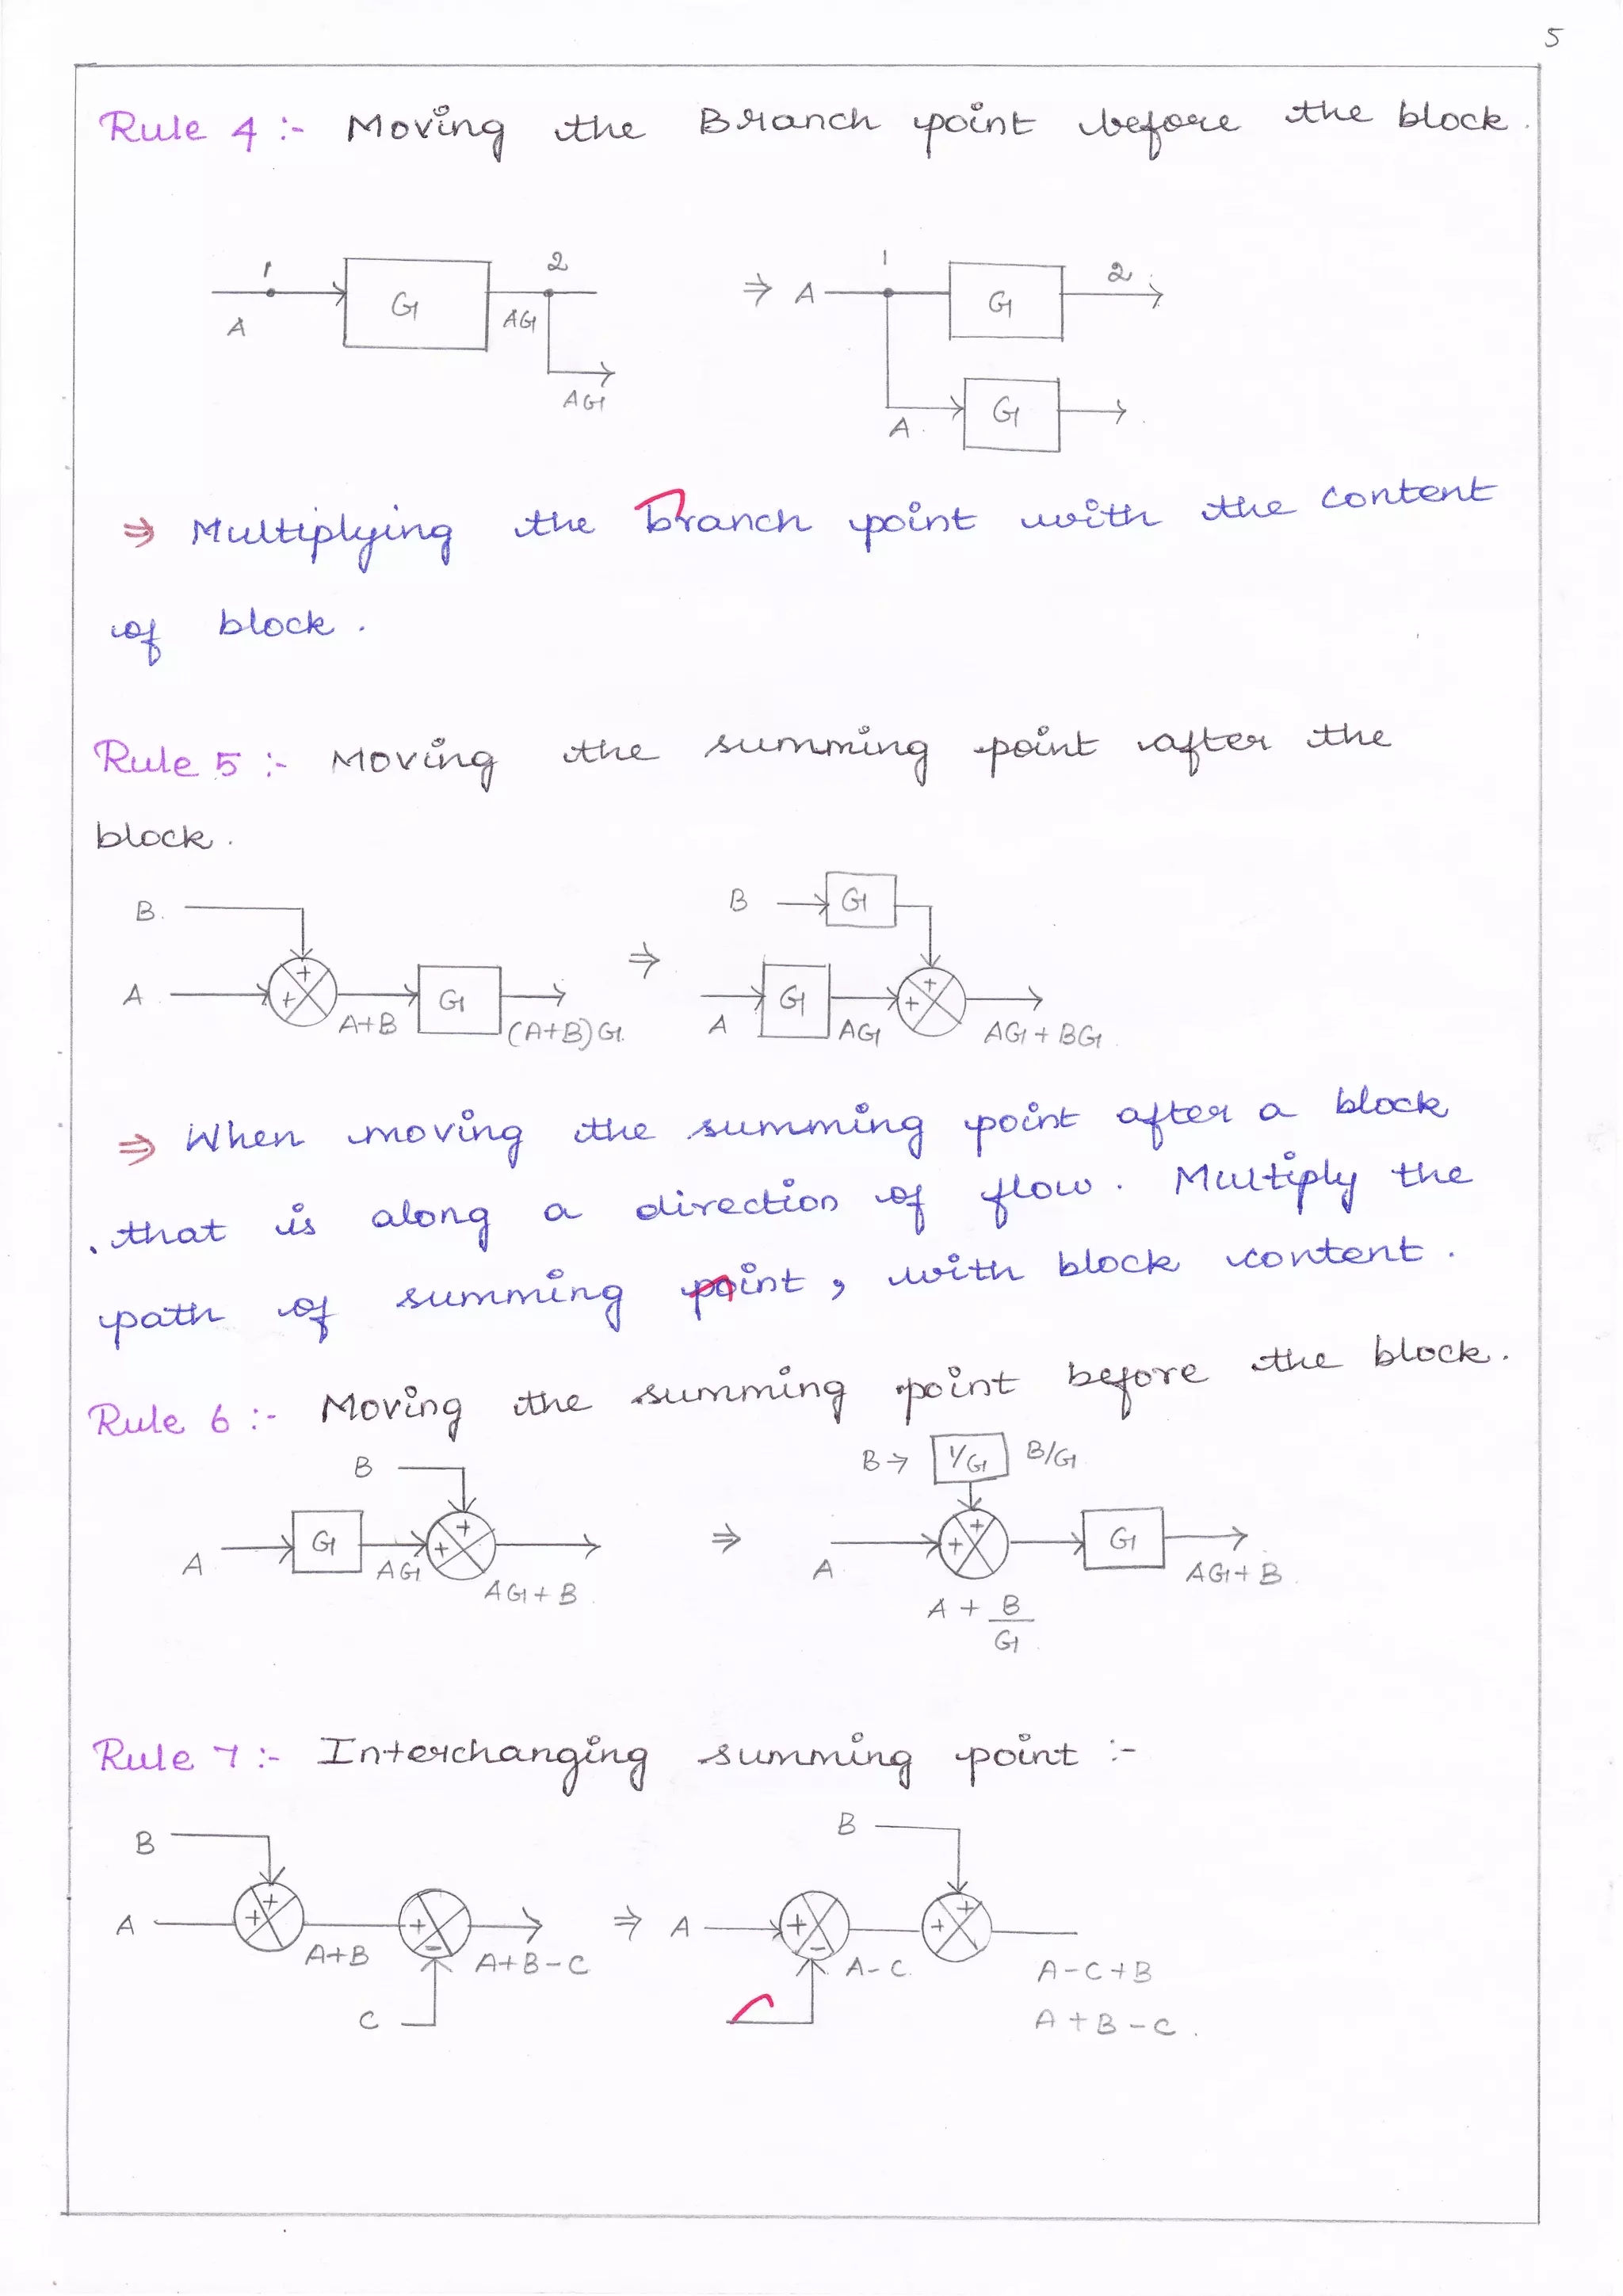 5
Rule 4 :- Moving the Branch point before the block.
1 2 1 2
G ⇒ A G
A AG
AG
A G
⇒ Multiplying the branch point with the content
of block.
Rule 5 :- Moving the summing point after the
block.
B B G
+ ⇒ +
A + G G +
A+B (A+B)G A AG AG + BG
⇒ When moving the summing point after a block
that is along a direction of flow. Multiply the
path of summing point, with block content.
Rule 6 :- Moving the summing point before the block.
B B → 1/G B/G
G + + ⇒ + + G
A AG AG + B A AG + B
A + B/G
Rule 7 :- Interchanging summing point :-
B B
A + + + - ⇒ A + - + +
A+B A+B-C A-C A-C+B
C A+B-C.